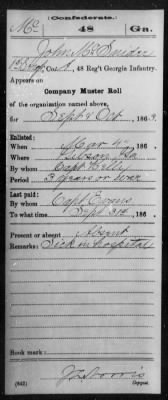 Mc
(Confederate.)
48
Ga.
John McSnider
Co. 48 Reg't Georgia Infantry.
Appears on
Company Muster Roll
of the organization named above,
for Sept & Oct, 186
Enlisted:
When Mar 4, 186
Where Gibson Ga
By whom Capt Kelly
Period 3 years or war
Last paid:
By whom Capt Evans
To what time 186
Present or absent Absent
Remarks: Sick in hospital
Book mark:
(642)
Copyist.